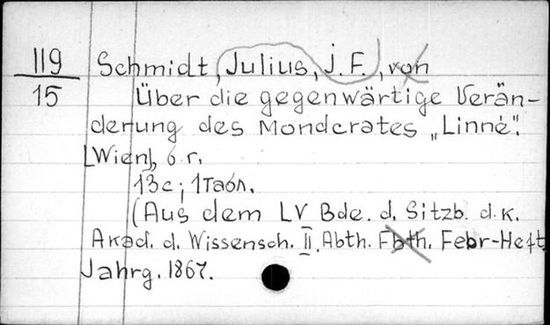 119
15
Schmidt, Julius, J. F., von
Über die gegenwärtige Verän-
derung des Mondcrates „Linné".
[Wien], б. г.
13 с; 1 табл.
(Aus dem LV Bde. d. Sitzb. d. K.
Akad. d. Wissensch. II. Abth. Fbth. Febr-Heft
Jahrg. 1867.